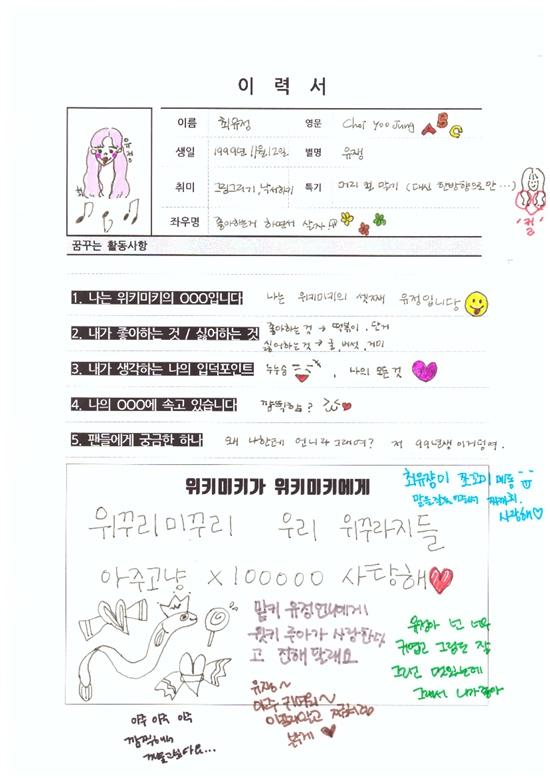 이 력 서
이름 최유정 영문 Choi Yoo Jung
생일 1999년 11월 12일 별명 유쟁
취미 그림그리기, 낙서하기 특기 머리 컬 말기 (대신 한방향으로만...)
'컬'
좌우명 좋아하는거 하면서 살자
꿈꾸는 활동사항
1. 나는 위키미키의 OOO입니다 나는 위키미키의 셋째 유정입니당
2. 내가 좋아하는 것 / 싫어하는 것 좋아하는것 → 떡볶이, 딸기
싫어하는것 → 굴, 버섯, 거미
3. 내가 생각하는 나의 입덕포인트 눈웃음, 나의 모든 것
4. 나의 OOO에 속고 있습니다 깜찍함?
5. 팬들에게 궁금한 하나 왜 나한테 언니라 그래여? 저 99년생 이거덩여.
위키미키가 위키미키에게
최유쟁이 쪼꼬미 메롱
사랑해♡
위꾸리미꾸리 우리 위꾸라지들
아주고냥 x100000 사탕해
맏키 유정언니에게
윗키 루아가 사랑한다
고 전해달래요
유정아 넌 너무
귀엽고 그림도 잘
그리고 멋있는데
그래서 니가좋아
유쟁~
아주 귀여워~
아주 아주 아주
깜찍해서